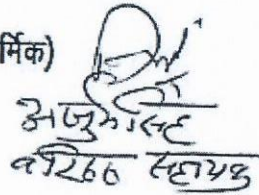 र्मिक)
अर्जुन सिंह
वरिष्ठ सहायक